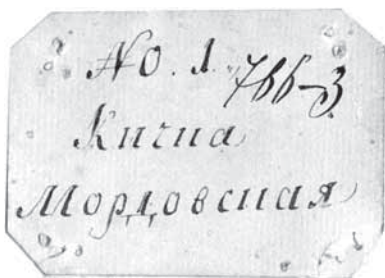 NO. 1. 766-3
Кичка
Мордовская